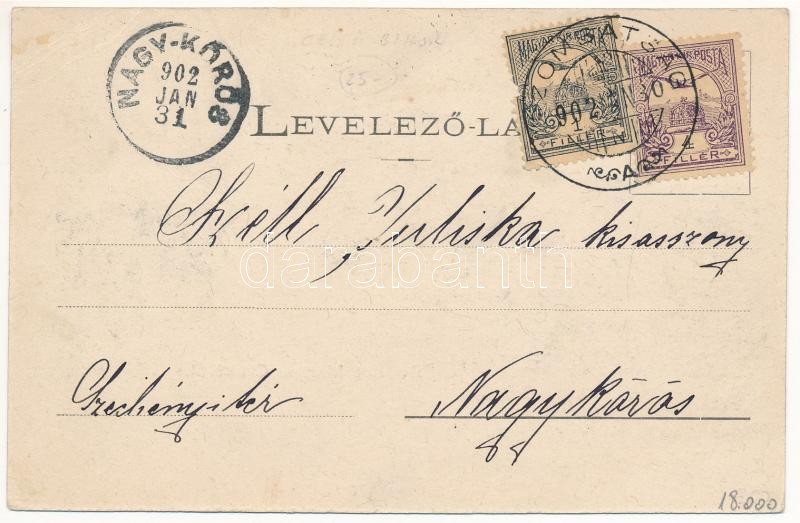 NAGY-KŐRÖS
902
JAN
31
MAGYAR KIR. POSTA
1
FILLÉR
MAGYAR KIR. POSTA
4
FILLÉR
902
LEVELEZŐ-LA
Széll Juliska kisasszony
darabanth
Széchényi tér
Nagykőrös
18.000